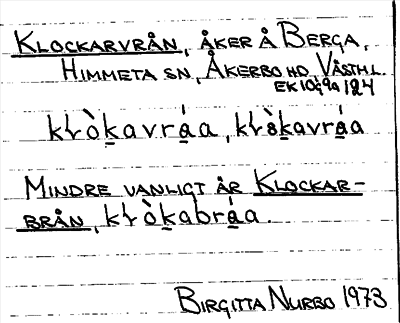 KLOCKARVRÅN, ÅKER Å BERGA,
HIMMETA SN, ÅKERBO HD, VÄSTML.
EK 10g9a 124
kɬòk̠avrá̠a, kɬò̠k̠avrá̠a
MINDRE VANLIGT ÄR KLOCKAR-
BRÅN, kɬòk̠abrá̠a.
BIRGITTA NURBO 1973